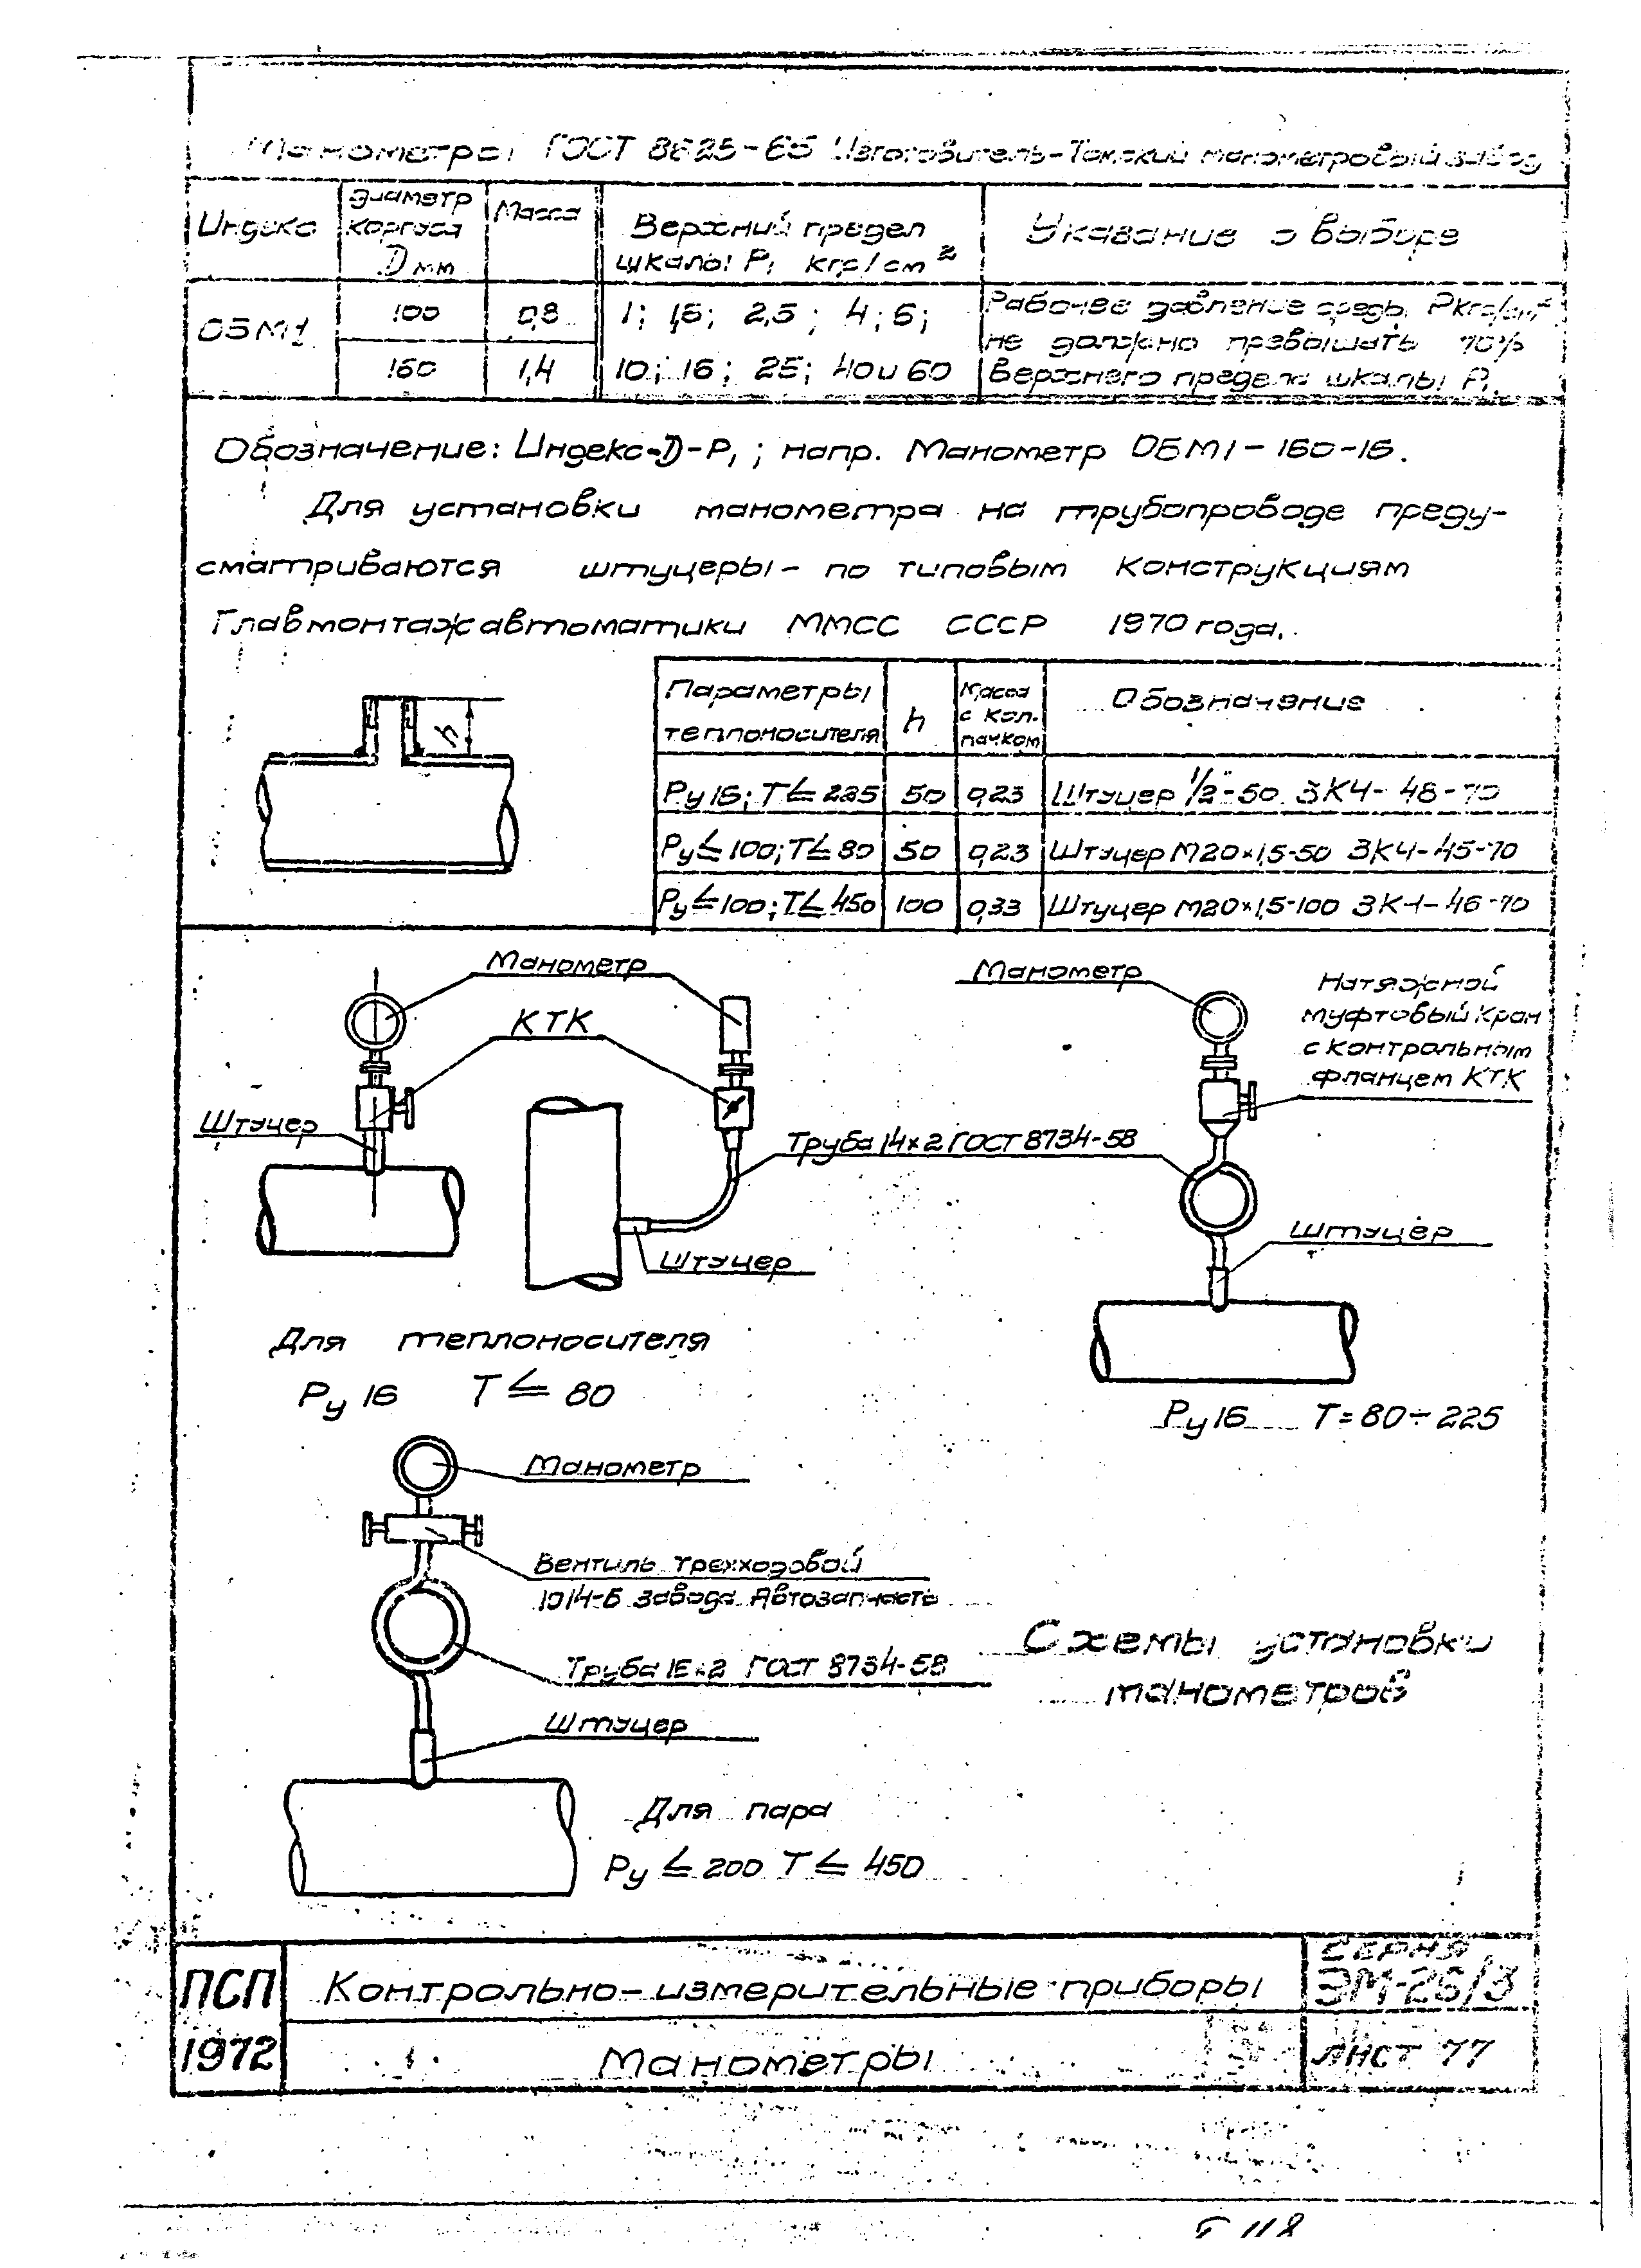 Манометры ГОСТ 8625-65 Изготовитель-Томский манометровый завод
Индекс
Диаметр
корпуса
D мм
Масса
Верхний предел
шкалы P₁ кгс/см²
Указание о выборе
ОБМ1
100
0,8
1; 1,6; 2,5; 4; 6;
160
1,4
10; 16; 25; 40 и 60
Рабочее давление среды Pкгс/см²
не должно превышать 70%
верхнего предела шкалы P₁.
Обозначение: Индекс-D-P₁; напр. Манометр ОБМ1-160-16.
Для установки манометра на трубопроводе преду-
сматриваются штуцеры- по типовым конструкциям
Главмонтажавтоматики ММСС СССР 1970 года.
h
Параметры
теплоносителя
h
Масса
с кол-
пачком
Обозначение
Ру16; Т≤225 50 0,23 Штуцер 1/2"-50 ЗК4-48-70
Ру≤100; Т≤80 50 0,23 Штуцер М20×1,5-50 ЗК4-45-70
Ру≤100; Т≤450 100 0,33 Штуцер М20×1,5-100 ЗК4-46-70
Манометр
КТК
Штуцер
Труба 14×2 ГОСТ 8734-58
Штуцер
Для теплоносителя
Ру 16 Т≤80
Манометр
Натяжной
муфтовый кран
с контрольным
фланцем КТК
Штуцер
Ру16 Т=80÷225
Манометр
Вентиль трехходовой
1014-Б завода Автозапчасть
Труба ×2 ГОСТ 8734-58
Штуцер
Для пара
Ру≤200 Т≤450
Схемы установки
манометров
ПСП
1972
Контрольно-измерительные приборы
Манометры
Серия
ЭМ-26/3
Лист 77
118